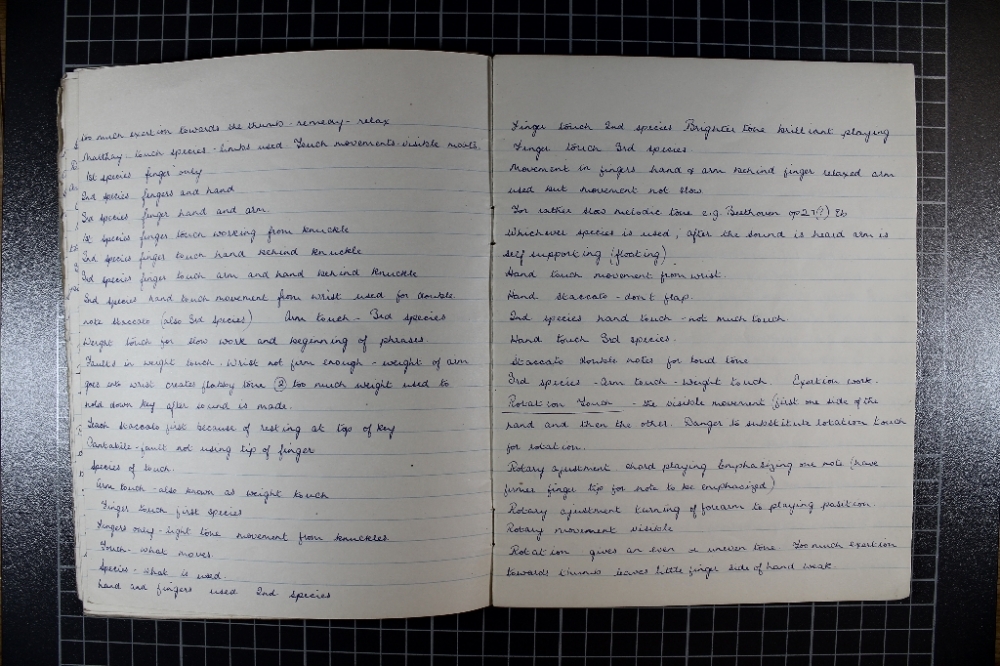 too much exertion towards the thumb - remedy - relax
Matthay - touch species - limbs used. Touch movements visible
1st species finger only
2nd species fingers and hand
3rd species finger hand and arm.
1st species finger touch working from knuckle
2nd species finger touch hand behind knuckle
3rd species finger touch arm and hand behind knuckle
2nd species hand touch movement from wrist used for double
note staccato (also 3rd species) Arm touch - 3rd species
Weight touch for slow work and beginning of phrases
Faults in weight touch. Wrist not firm enough - weight of arm
goes into wrist creates flabby tone ② too much weight used to
hold down key after sound is made.
Teach staccato first because of resting at top of key
Cantabile - fault not using tip of finger
Species of touch.
Arm touch - also known as weight touch
Finger touch first species
Fingers only - light tone movement from knuckles
Touch - what moves
Species - what is used.
hand and fingers used 2nd species
Finger touch 2nd species Brighter tone brilliant playing
Finger touch 3rd species
Movement in fingers hand & arm behind finger relaxed arm
used but movement not slow
For rather slow melodic tone e.g. Beethoven op 27 (?) Eb
Whichever species is used, after the sound is heard arm is
self supporting (floating)
Hand touch movement from wrist.
Hand staccato - don't flap.
2nd species hand touch - not much touch.
Hand touch 3rd species.
Staccato double notes for loud tone
3rd species - arm touch - weight touch. Exertion work.
Rotation Touch - the visible movement (first one side of the
hand and then the other. Danger to substitute rotation touch
for rotation.
Rotary ajustment chord playing emphasizing one note (have
firmer finger tip for note to be emphasized)
Rotary ajustment turning of forearm to playing position.
Rotary movement visible
Rotation gives an even or uneven tone. Too much exertion
towards thumb leaves little finger side of hand weak.